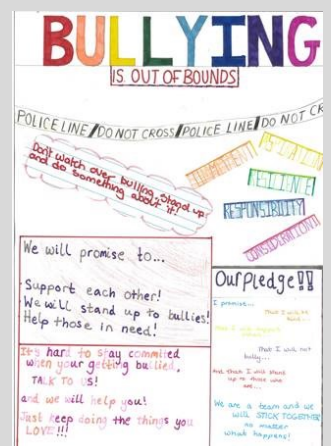 BULLYING
IS OUT OF BOUNDS
POLICE LINE / DO NOT CROSS / POLICE LINE / DO NOT CR
Don't watch over bulling, stand up
and do something about it!
RESILIENCE
RESPONSIBILITY
CONSIDERATION
We will promise to...
Support each other!
We will stand up to bullies!
Help those in need!
It's hard to stay commited
when your getting bullied,
TALK TO US!
and we will help you!
Just keep doing the things you
LOVE!!!
Our pledge!!
I promise...
That I will be
That I will not
bully...
And that I will stand
up to those who
We are a team and we
will STICK TOGETHER
no matter
what happens!